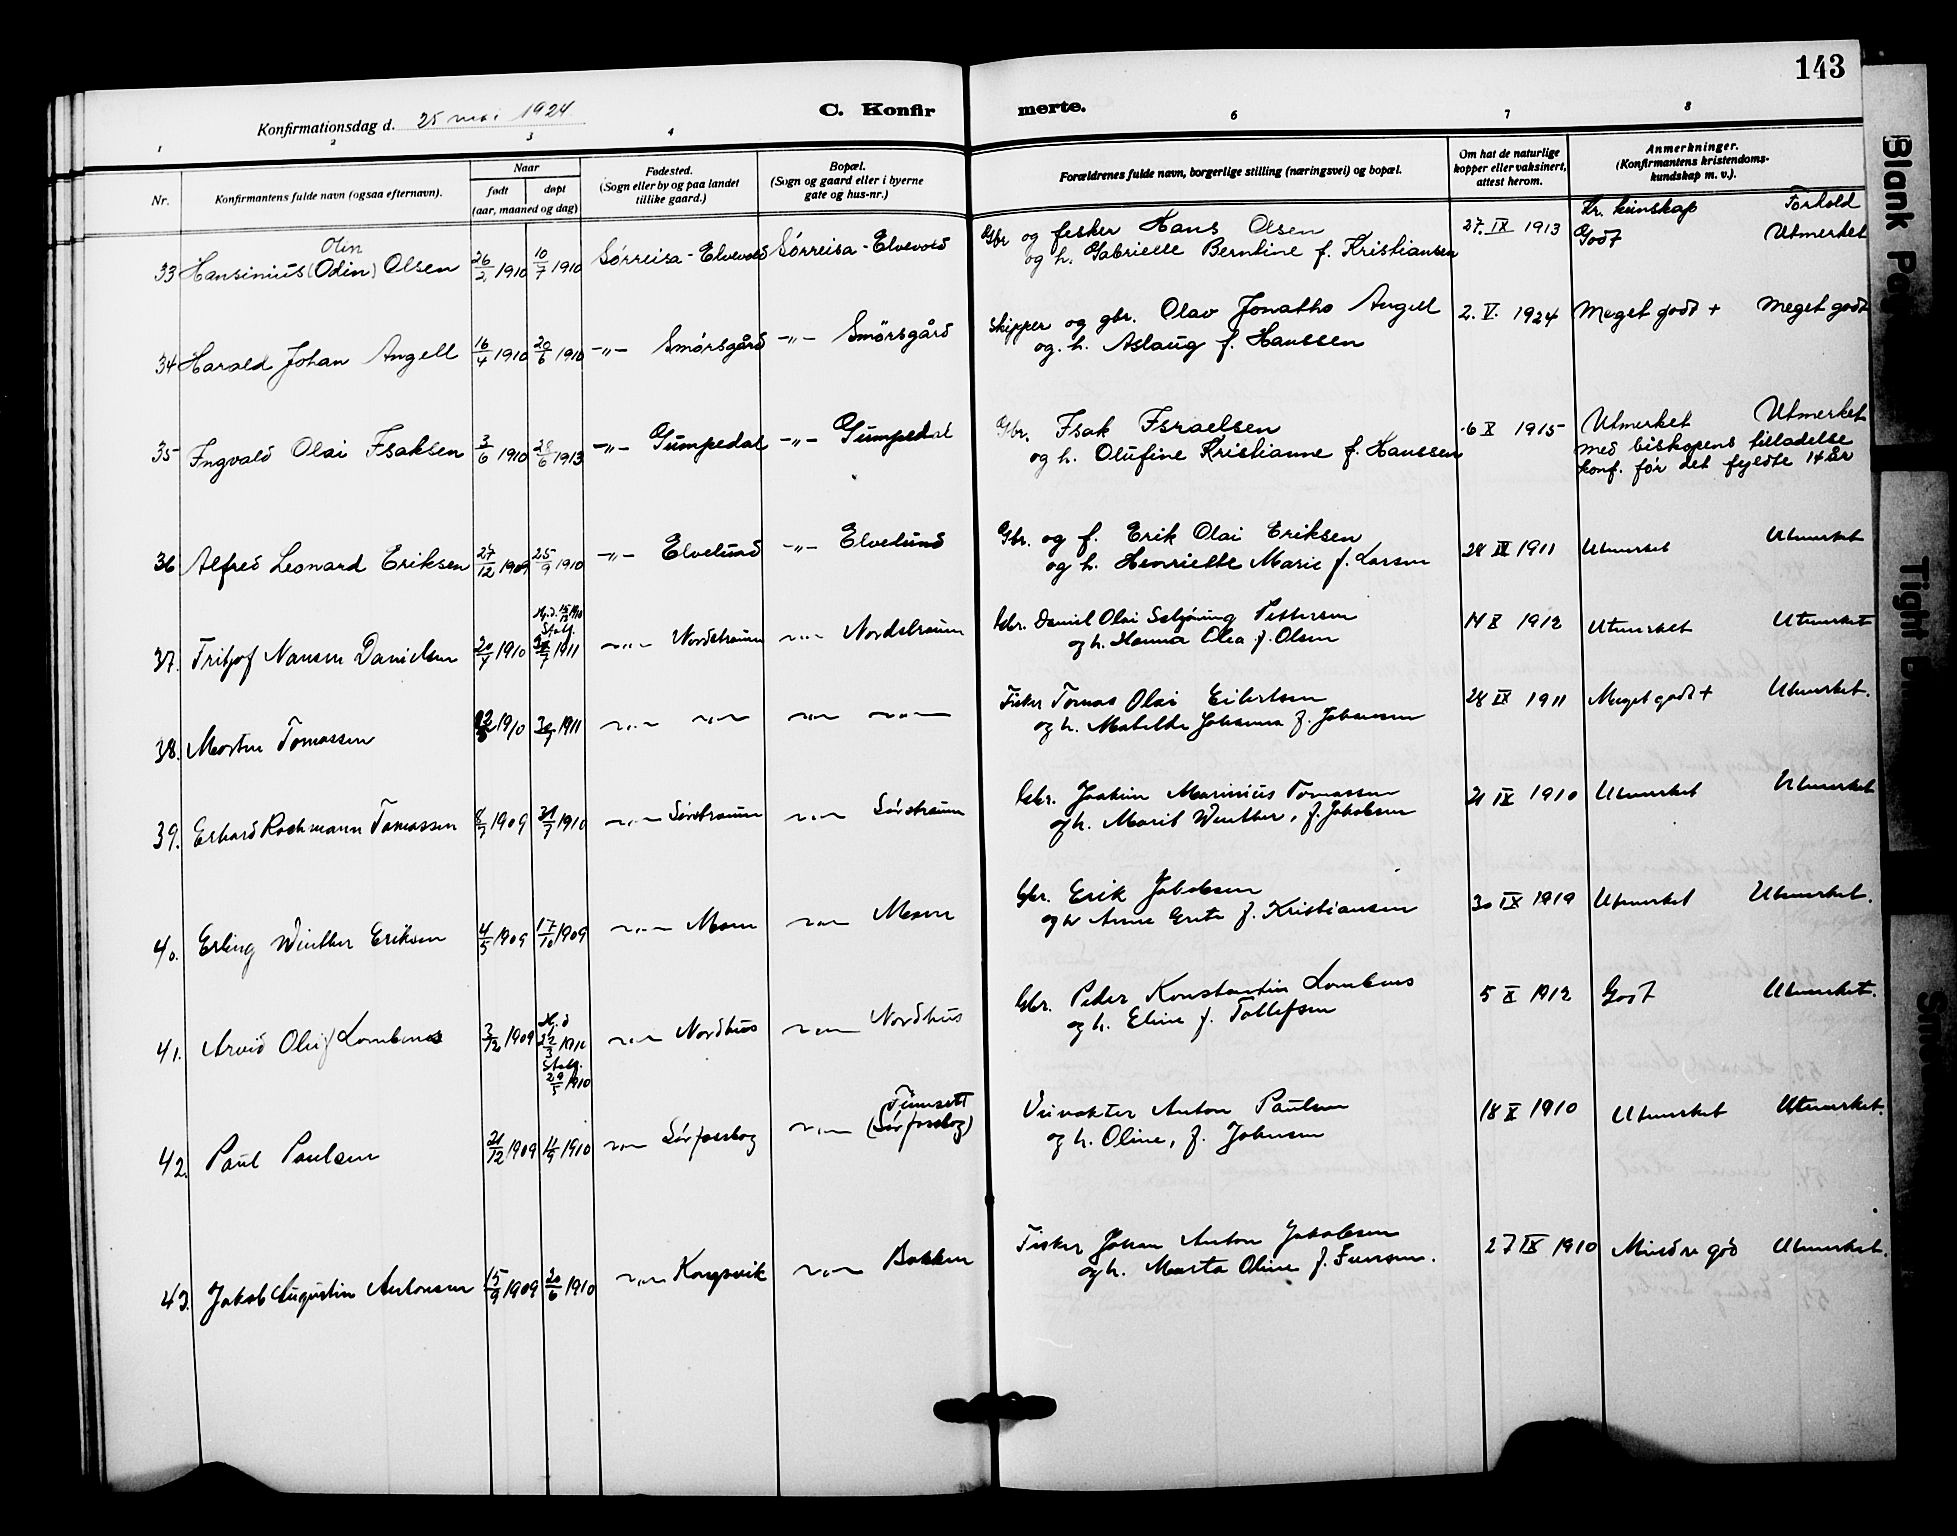 143
Konfirmationsdag d. 25 mai 1924
C. Konfir merte.
1 2 3 4 6 7 8
Nr.
Konfirmantens fulde navn (ogsaa efternavn).
Naar
født
døpt
(aar, maaned og dag)
Fødested.
(Sogn eller by og paa landet
tillike gaard.)
Bopæl.
(Sogn og gaard eller i byerne
gate og hus-nr.)
Forældrenes fulde navn, borgerlige stilling (næringsvei) og bopæl.
Om hat de naturlige
kopper eller vaksinert,
attest herom.
Anmerkninger.
(Konfirmantens kristendoms-
kundskap m. v.).
Kr. kunskap Forhold
Odin
33 Hansinius (Odin) Olsen 26/2 1910 10/7 1910 Sørreisa - Elvevold Sørreisa - Elvevold Gbr og fisker Hans Olsen 27. IX 1913 Godt Utmerket
og h. Gabrielle Berntine f. Kristiansen
34 Harald Johan Angell 16/4 1910 20/6 1910 -"- Smørsgård -"- Smörsgård Skipper og gbr. Olav Jonaths Angell 2. V. 1924 Meget godt + Meget godt
og. h. Aslaug f. Hanssen
35 Ingvald Olai Isaksen 3/6 1910 28/6 1913 -"- Gumpedal -"- Gumpedal Gbr. Isak Israelsen 6 X 1915 Utmerket Utmerket
og h. Olufine Kristianne f. Hanssen med biskopens tilladelse
konf. før det fyldte 14 år
36 Alfred Leonard Eriksen 27/12 1909 25/9 1910 -"- Elvelund -"- Elvelund Gbr. og f. Erik Olai Eriksen 28 IX 1911 Utmerket Utmerket
og h. Henriette Marie f. Larsen
Stadf.
37. Fritjof Nansen Danielsen 20/7 1910 30/7 1911 -"- Nordstraum -"- Nordstraum Gbr. Daniel Olai Selfjøning Pettersen 14 X 1912 Utmerket Utmerket
og h. Hanna Olea f. Olsen
38. Morten Tomassen 1910 30/7 1911 -"- -"- -"- -"- Fisker Tomas Olai Eilertsen 28 IX 1911 Meget godt + Utmerket.
og h. Matilde Johanna f. Johansen
39. Erhard Rochmann Tomassen 8/7 1909 31/7 1910 -"- Sørstraum -"- Sørstraum Gbr. Joakim Marinius Tomassen 21 IX 1910 Utmerket Utmerket
og h. Marit Winther, f. Jakobsen
40. Erling Winther Eriksen 4/5 1909 17/10 1909 -"- Moen -"- Moen Gbr. Erik Jakobsen 30 IX 1919 Utmerket Utmerket.
og h Anne Grete f. Kristiansen
Hj. d
41. Arvid Oluf Lombnes 3/12 1909 -"- Nordhus -"- Nordhus Gbr. Peder Konstantin Lombnes 5 X 1912 Godt Utmerket.
og h. Eline f. Tollefsen
Stadf.
29/5 1910
42. Paul Paulsen 31/12 1909 11/9 1910 -"- Sørfossbog -"- Finnsett Veivokter Anton Paulsen 18 X 1910 Utmerket Utmerket.
(Sørfossbog) og h. Oline, f. Johnsen
43. Jakob Augustin Antonsen 15/9 1909 20/6 1910 -"- Kongsvik -"- Bakken Fisker Johan Anton Jakobsen 27 IX 1910 Mindre god Utmerket.
og h. Marta Oline f. Iversen.
Blank Pag
Tight B